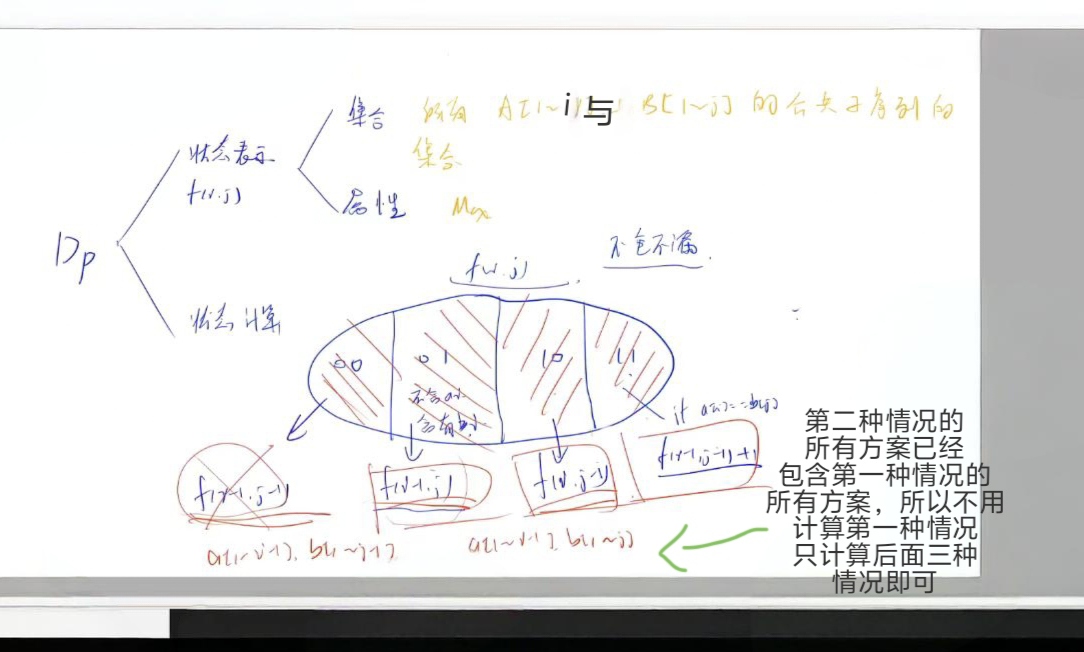 集合 所有 A[1~i]与 B[1~j] 的公共子序列的
集合
状态表示
f(i,j)
属性 Max
Dp
不重不漏.
f(i,j)
状态计算
00 01 10 11
不含a[i]
含有b[j]
if a[i]==b[j]
f(i-1,j-1) f(i-1,j) f(i,j-1) f(i-1,j-1)+1
a[1~i-1], b[1~j-1] a[1~i-1], b[1~j]
第二种情况的
所有方案已经
包含第一种情况的
所有方案，所以不用
计算第一种情况
只计算后面三种
情况即可